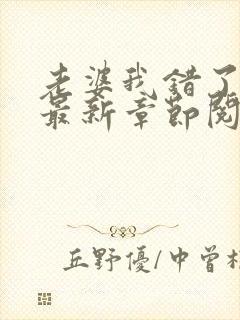 老婆我错了
最新章节阅
丘野優/中曽根